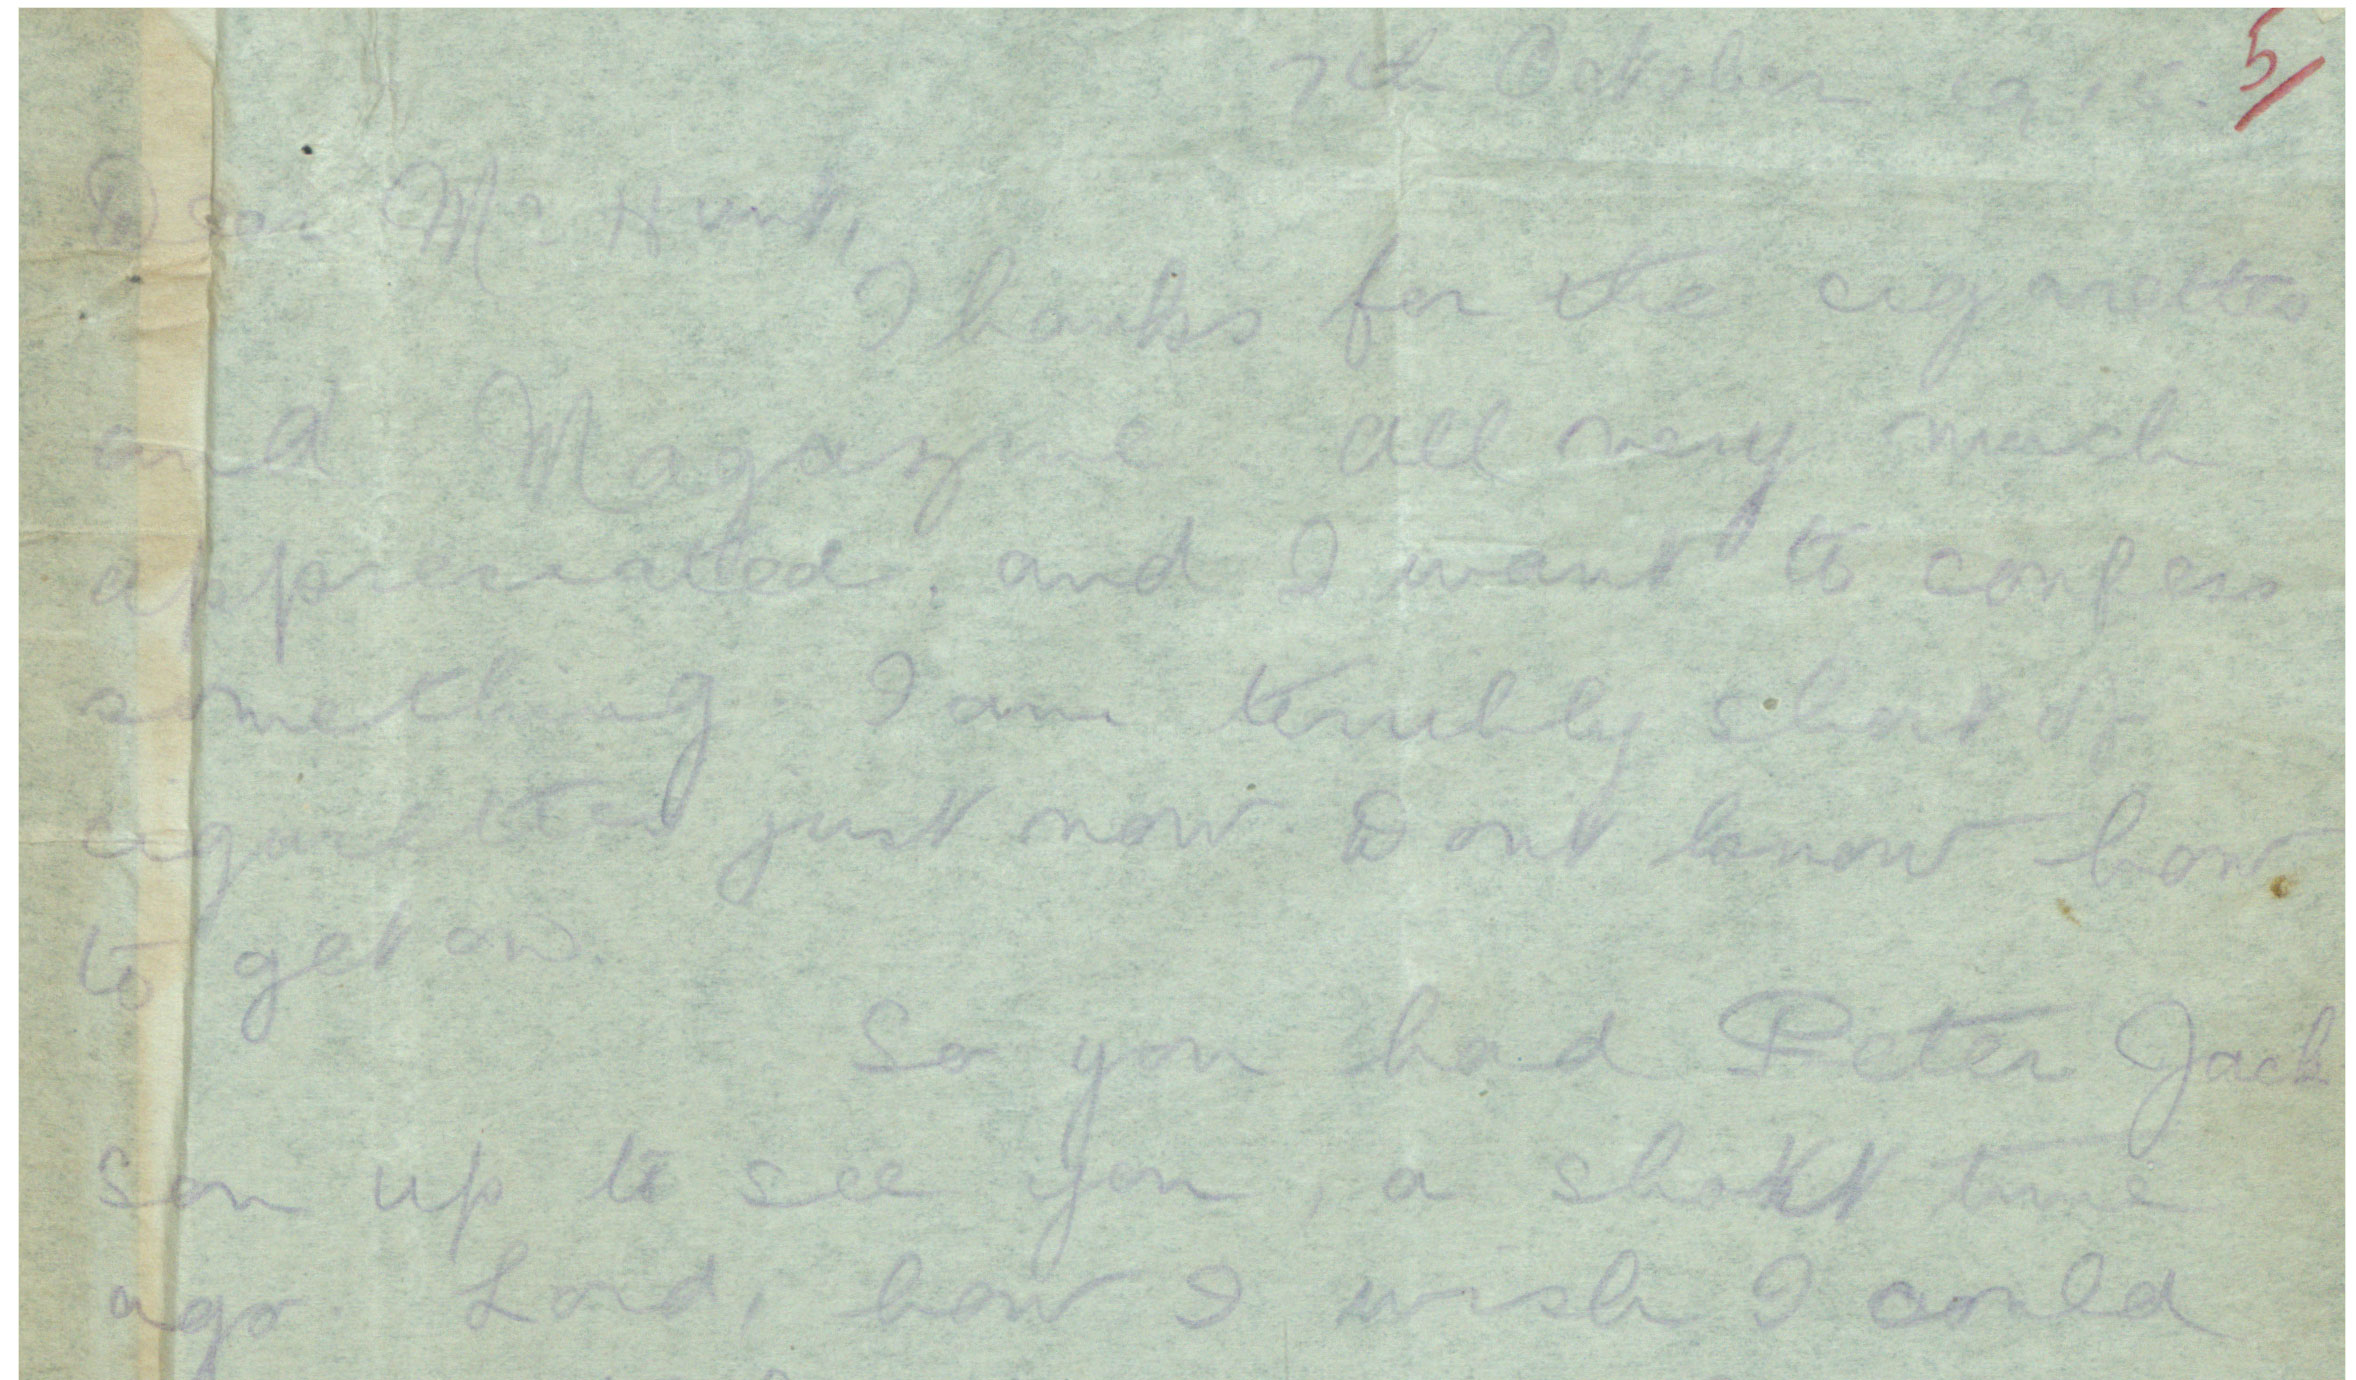 5/
7th October 1915.
Dear Mr Hunt,
Thanks for the cigarettes
and Magazine. All very much
appreciated, and I want to confess
something. I am terribly short of
cigarettes just now. Dont know how
to get on.
So you had Peter Jack
son up to see you, a short time
ago. Lord, how I wish I could